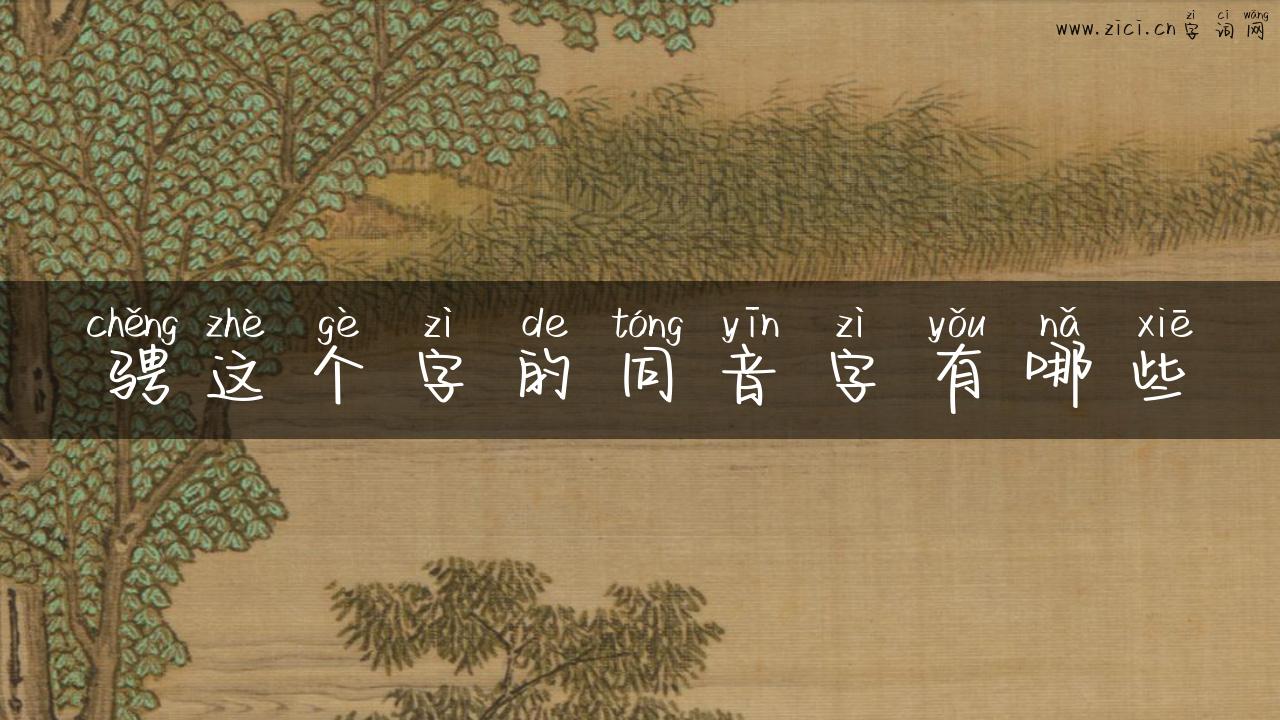 zì cí wǎng
www.zici.cn字词网
chěng zhè gè zì de tóng yīn zì yǒu nǎ xiē
骋这个字的同音字有哪些